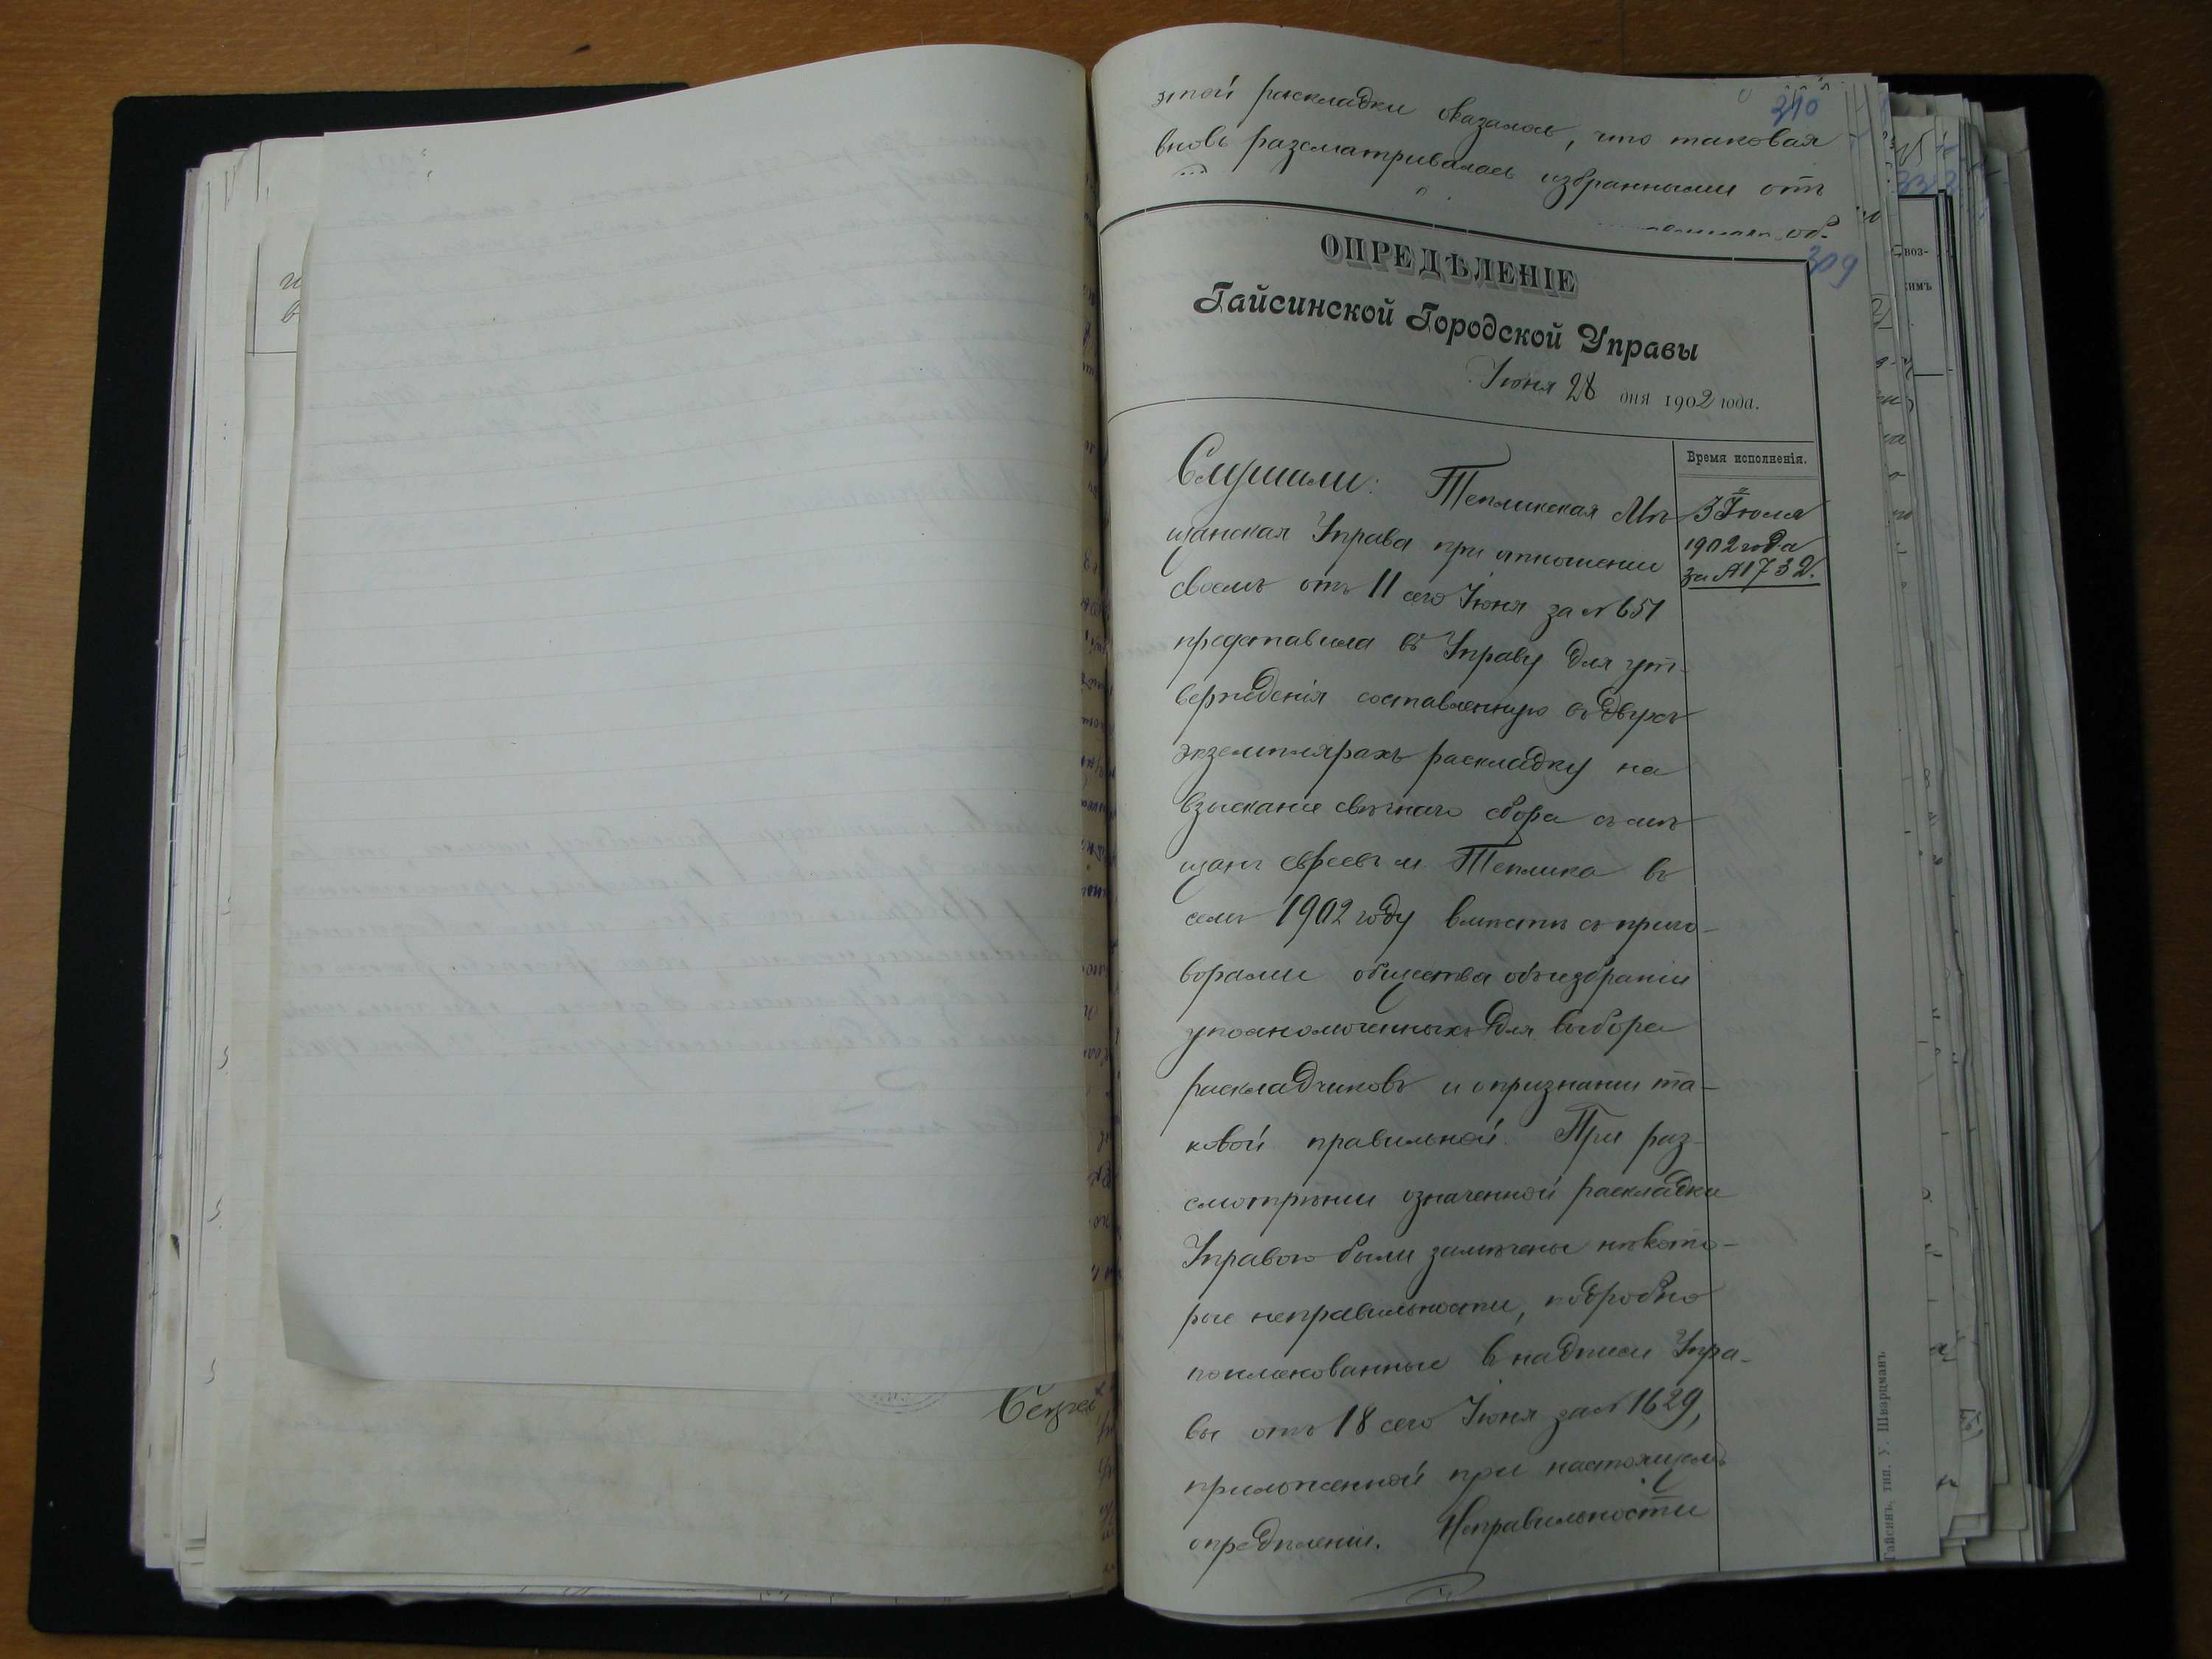 этой раскладки оказалось, что таковая
вновь разсматривалась избранными отъ
310
309
ОПРЕДѢЛЕНІЕ
Гайсинской Городской Управы
Іюня 28 дня 1902 года.
Время исполненія.
3 Іюля
1902 года
за № 1732.
Слушали: Тепликская Мѣ-
щанская Управа при отношеніи
своемъ отъ 11 сего Іюня за № 651
представила въ Управу для ут-
вержденія составленную въ двухъ
экземплярахъ раскладку на
взысканіе свѣчнаго сбора съ мѣ-
щанъ евреевъ м. Теплика въ
семъ 1902 году вмѣстѣ съ приго-
ворами общества объ избраніи
уполномоченныхъ для выбора
раскладчиковъ и о признаніи та-
ковой правильной. При раз-
смотрѣніи означенной раскладки
Управою были замѣчены нѣкото-
рые неправильности, подробно
поименованные в надписи Упра-
вы отъ 18 сего Іюня за № 1629,
приложенной при настоящемъ
опредѣленіи. Неправильности
Гайсинъ, тип. У. Шварцманъ